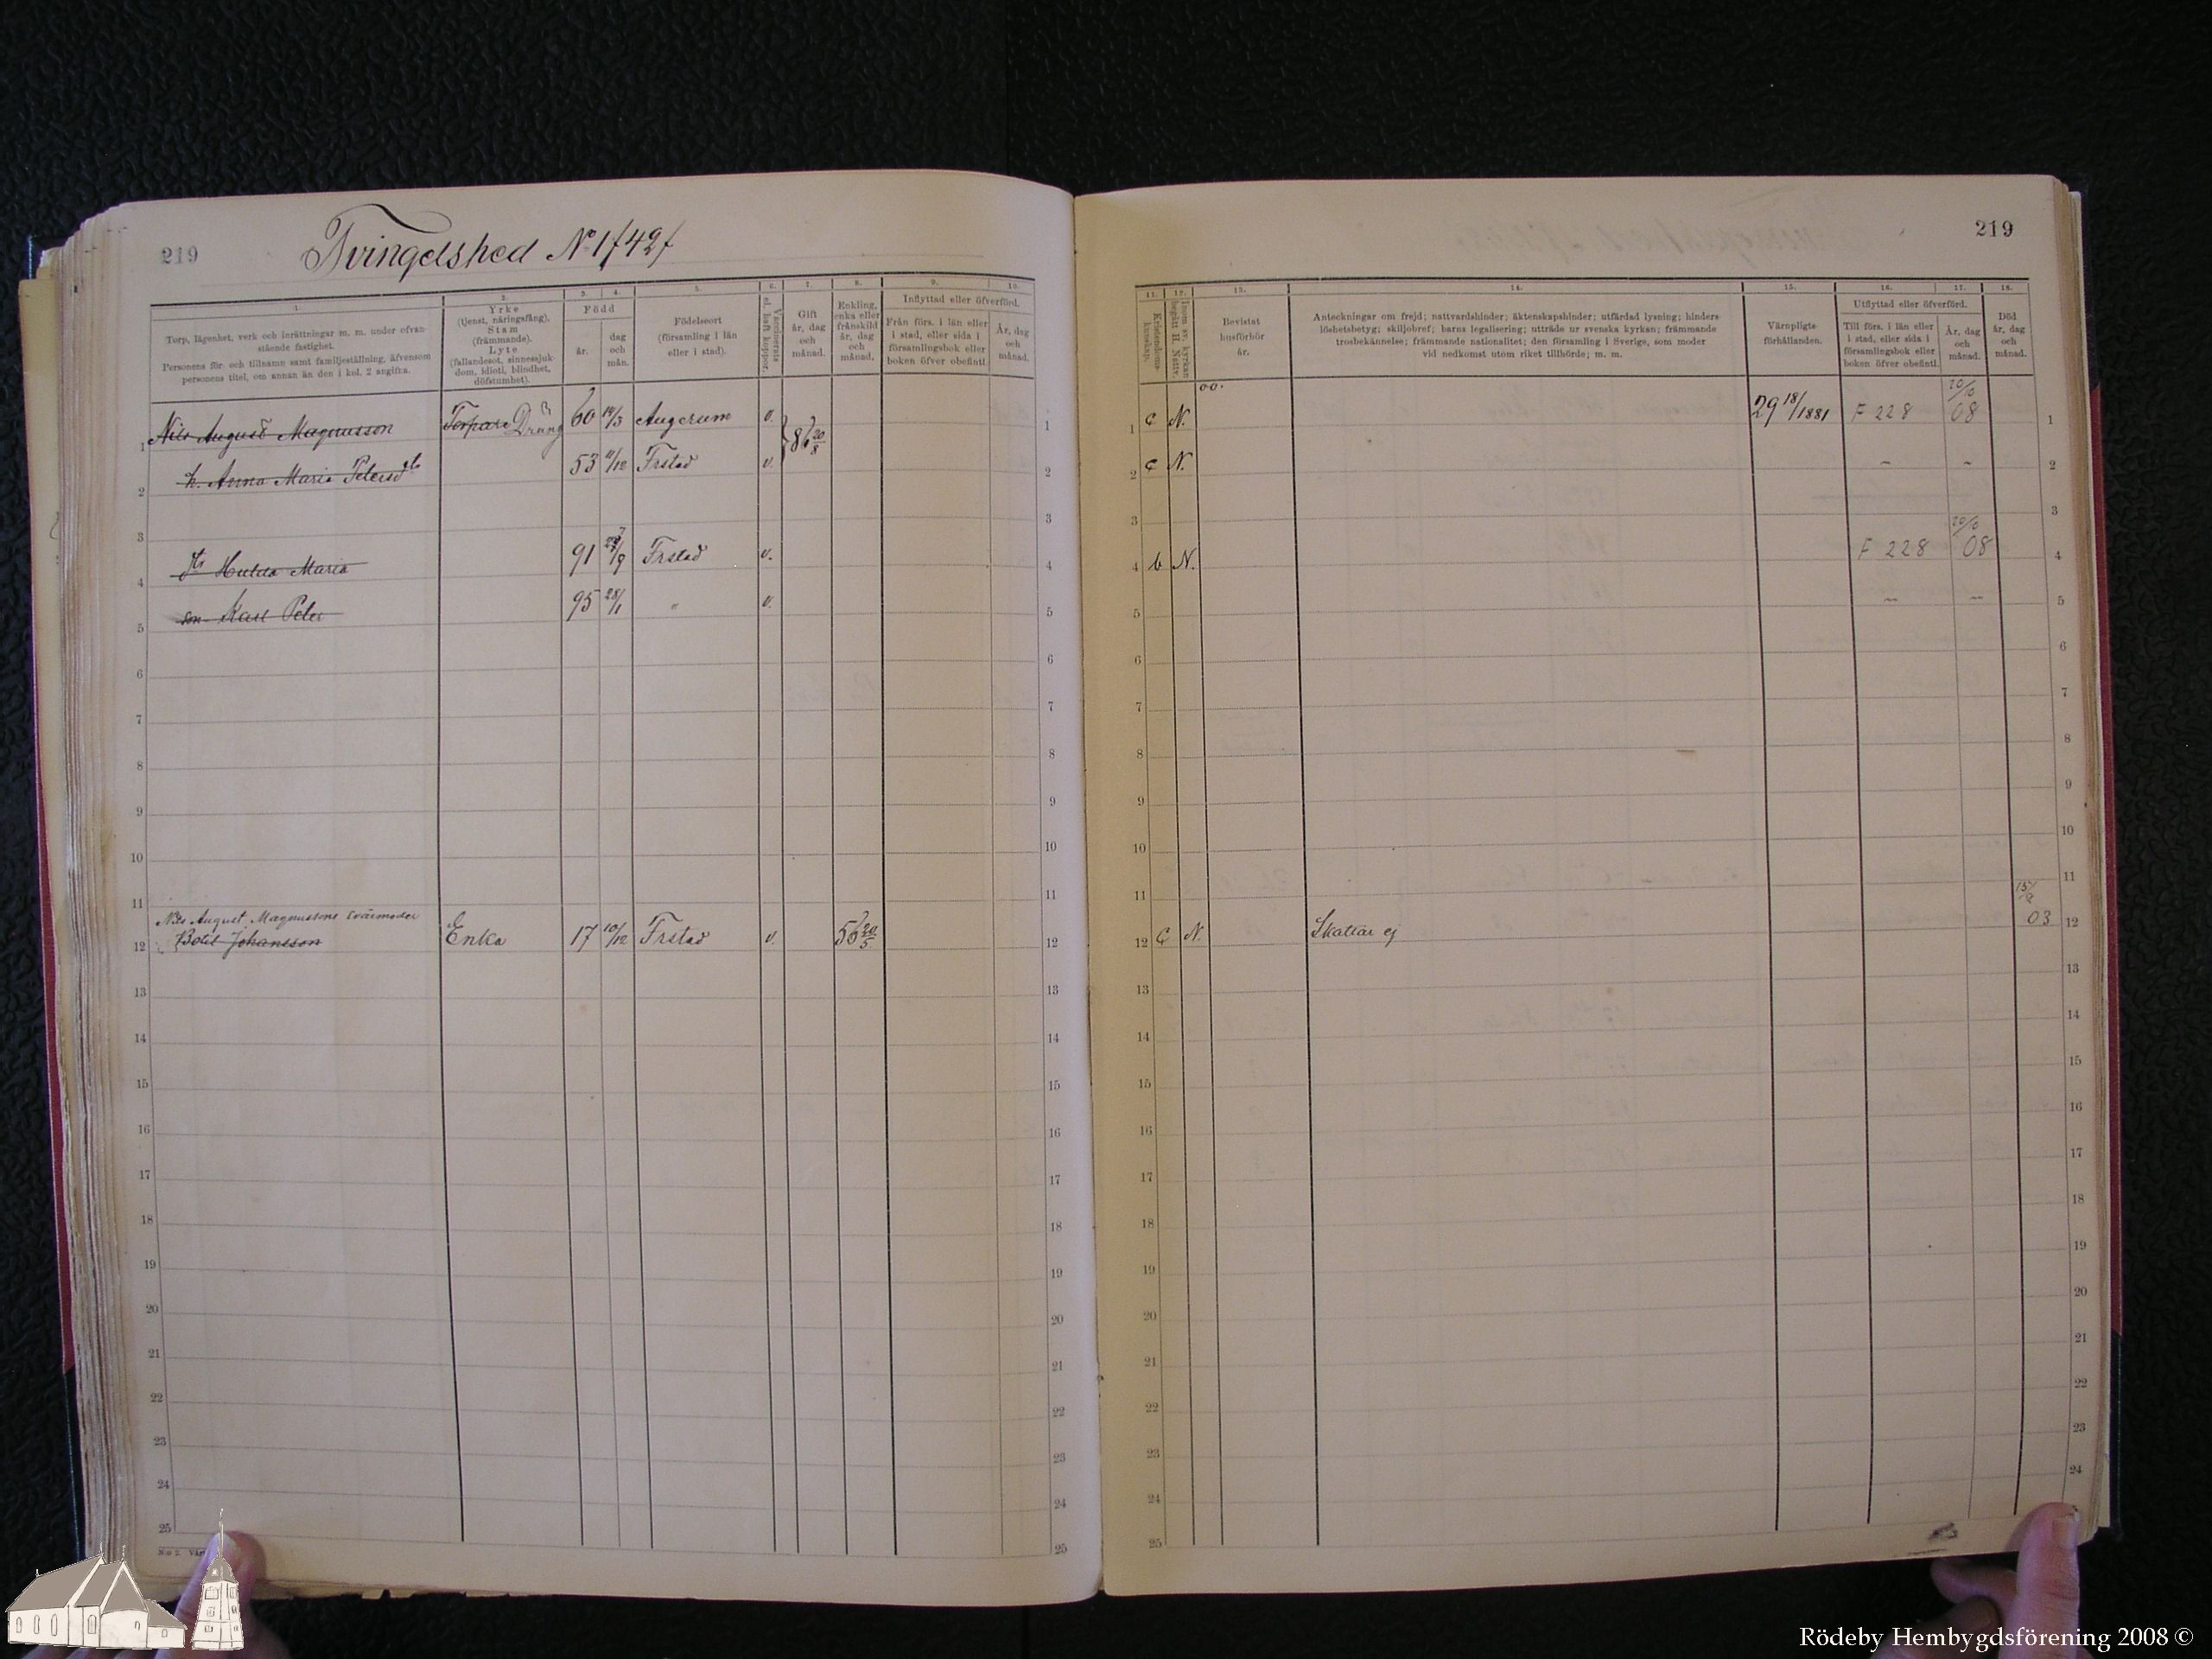 219
Tvingelshed No 1 f 42 f
1. 2. 3. 4. 5. 6. 7. 8. 9. 10.
Torp, lägenhet, verk och inrättningar m. m. under ofvan-
stående fastighet.
Personens för- och tillnamn samt familjeställning, äfvensom
personens titel, om annan än den i kol. 2 angifna.
Yrke
(tjenst, näringsfång).
Stam
(främmande).
Lyte
(fallandesot, sinnessjuk-
dom, idioti, blindhet,
döfstumhet).
Född
år.
dag
och
mån.
Födelseort
(församling i län
eller i stad).
Vaccinerats
el. haft koppor.
Gift
år, dag
och
månad.
Enkling,
enka eller
frånskild
år, dag
och
månad.
Inflyttad eller öfverförd.
Från förs. i län eller
i stad, eller sida i
församlingsbok eller
boken öfver obefintl.
År, dag
och
månad.
1 Nils August Magnusson Torpare Dräng 60 14/3 Augerum v. 86 20/8 1
2 h. Anna Maria Petersdtr 53 11/12 Frstad v. 2
3 3
4 Hulda Maria 91 /9 Frstad v. 4
5 son Karl Peter 95 28/1 " v. 5
6 6
7 7
8 8
9 9
10 10
11 11
Nils August Magnussons svärmoder
12 Botil Johansson Enka 17 10/12 Frstad v. 56 20/5 12
13 13
14 14
15 15
16 16
17 17
18 18
19 19
20 20
21 21
22 22
23 23
24 24
25 25
219
11. 12. 13. 14. 15. 16. 17. 18.
Kristendoms-
kunskap.
Inom sv. kyrkan
begått H. Nattv.
Bevistat
husförhör
år.
Anteckningar om frejd; nattvardshinder; äktenskapshinder; utfärdad lysning; hinders-
löshetsbetyg; skiljobref; barns legalisering; utträde ur svenska kyrkan; främmande
trosbekännelse; främmande nationalitet; den församling i Sverige, som moder
vid nedkomst utom riket tillhörde; m. m.
Värnpligts-
förhållanden.
Utflyttad eller öfverförd.
Till förs. i län eller
i stad, eller sida i
församlingsbok eller
boken öfver obefintl.
År, dag
och
månad.
Död
år, dag
och
månad.
00.
1 c N. 29 18/1881 F 228 20/10 08 1
2 c N. - - 2
3 3
4 b N. F 228 20/10 08 4
5 - - 5
6 6
7 7
8 8
9 9
10 10
11 11
12 c N. Skattar ej 03 12
13 13
14 14
15 15
16 16
17 17
18 18
19 19
20 20
21 21
22 22
23 23
24 24
25
Rödeby Hembygdsförening 2008 ©